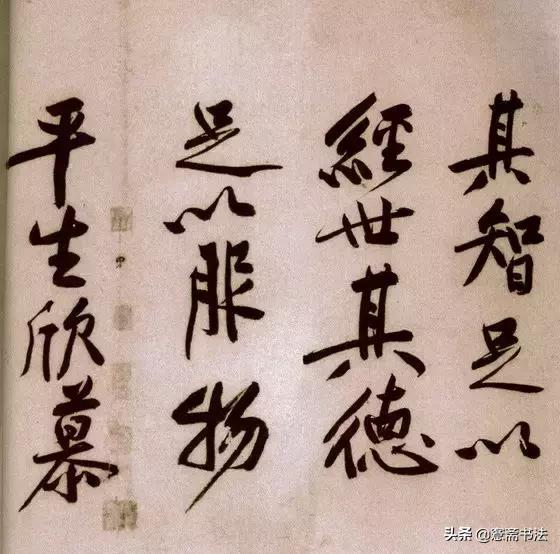 其智足以
經世其德
足以服物
平生欣慕
头条 @愙斋书法